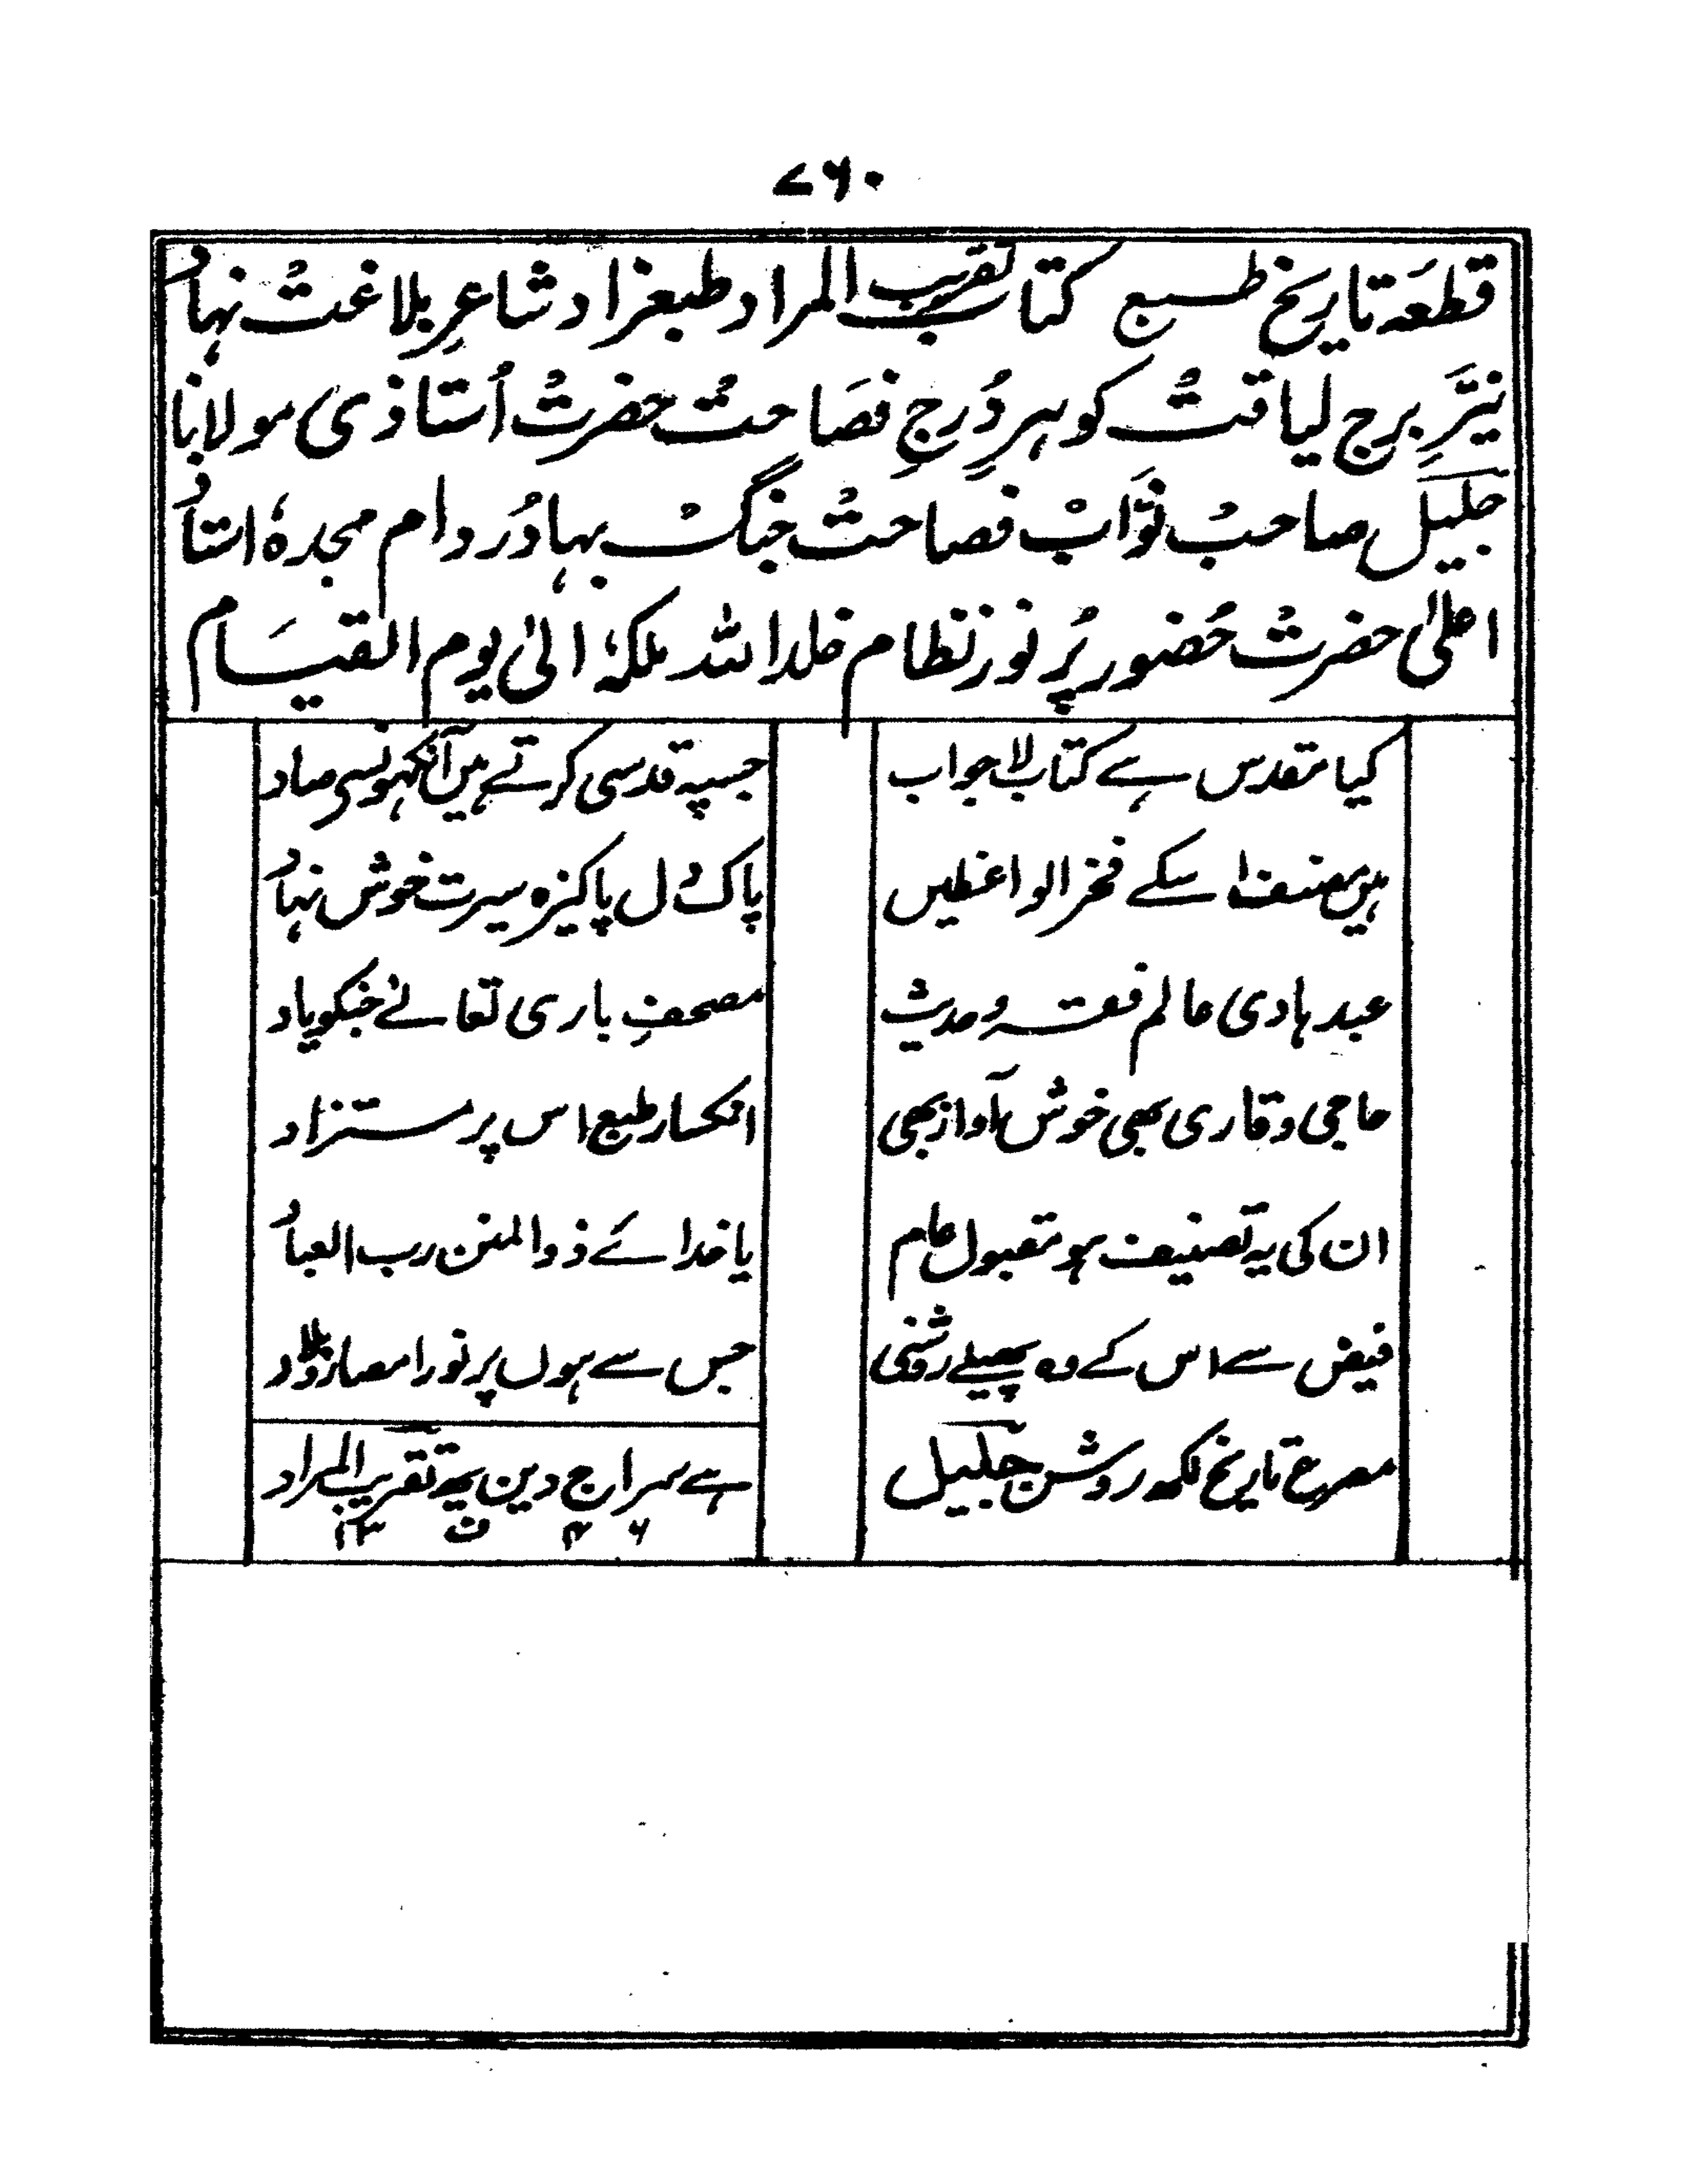 ۷۶۰
قطعۂ تاریخ طبع کتاب تقریب المراد طبعزاد شاعرِ بلاغت نہاد
نیّرِ برج لیاقت گوہر دُرجِ فصاحت حضرت اُستاذی مولانا
جلیل صاحب نوّاب فصاحت جنگ بہادر دام مجدہٗ استاد
اعلیٰ حضرت حُضور پُر نور نظام خلد اللہ ملکہٗ الیٰ یوم القیام
کیا مقدس ہے کتاب لاجواب جسپہ قدسی کرتے ہیں آنکہونسی صاد
ہیں مصنف اسکے فخر الواعظیں پاک دل پاکیزہ سیرت خوش نہاد
عبد ہادی عالم فقہ و حدیث مصحفِ باری تعالےٰ جنکو یاد
حاجی و قاری بھی خوش آواز بھی انکسار طبع اس پر مستزاد
ان کی یہ تصنیف ہو مقبول عام یا خدائے ذو المنن رب العباد
فیض سے اس کے وہ پھیلے روشنی جس سے ہوں پر نور امصار و بلاد
مصرع تاریخ لکہہ روشن جلیل ہے سراج دین یہ تقریب المراد
۱۳ ف ۴ ۶